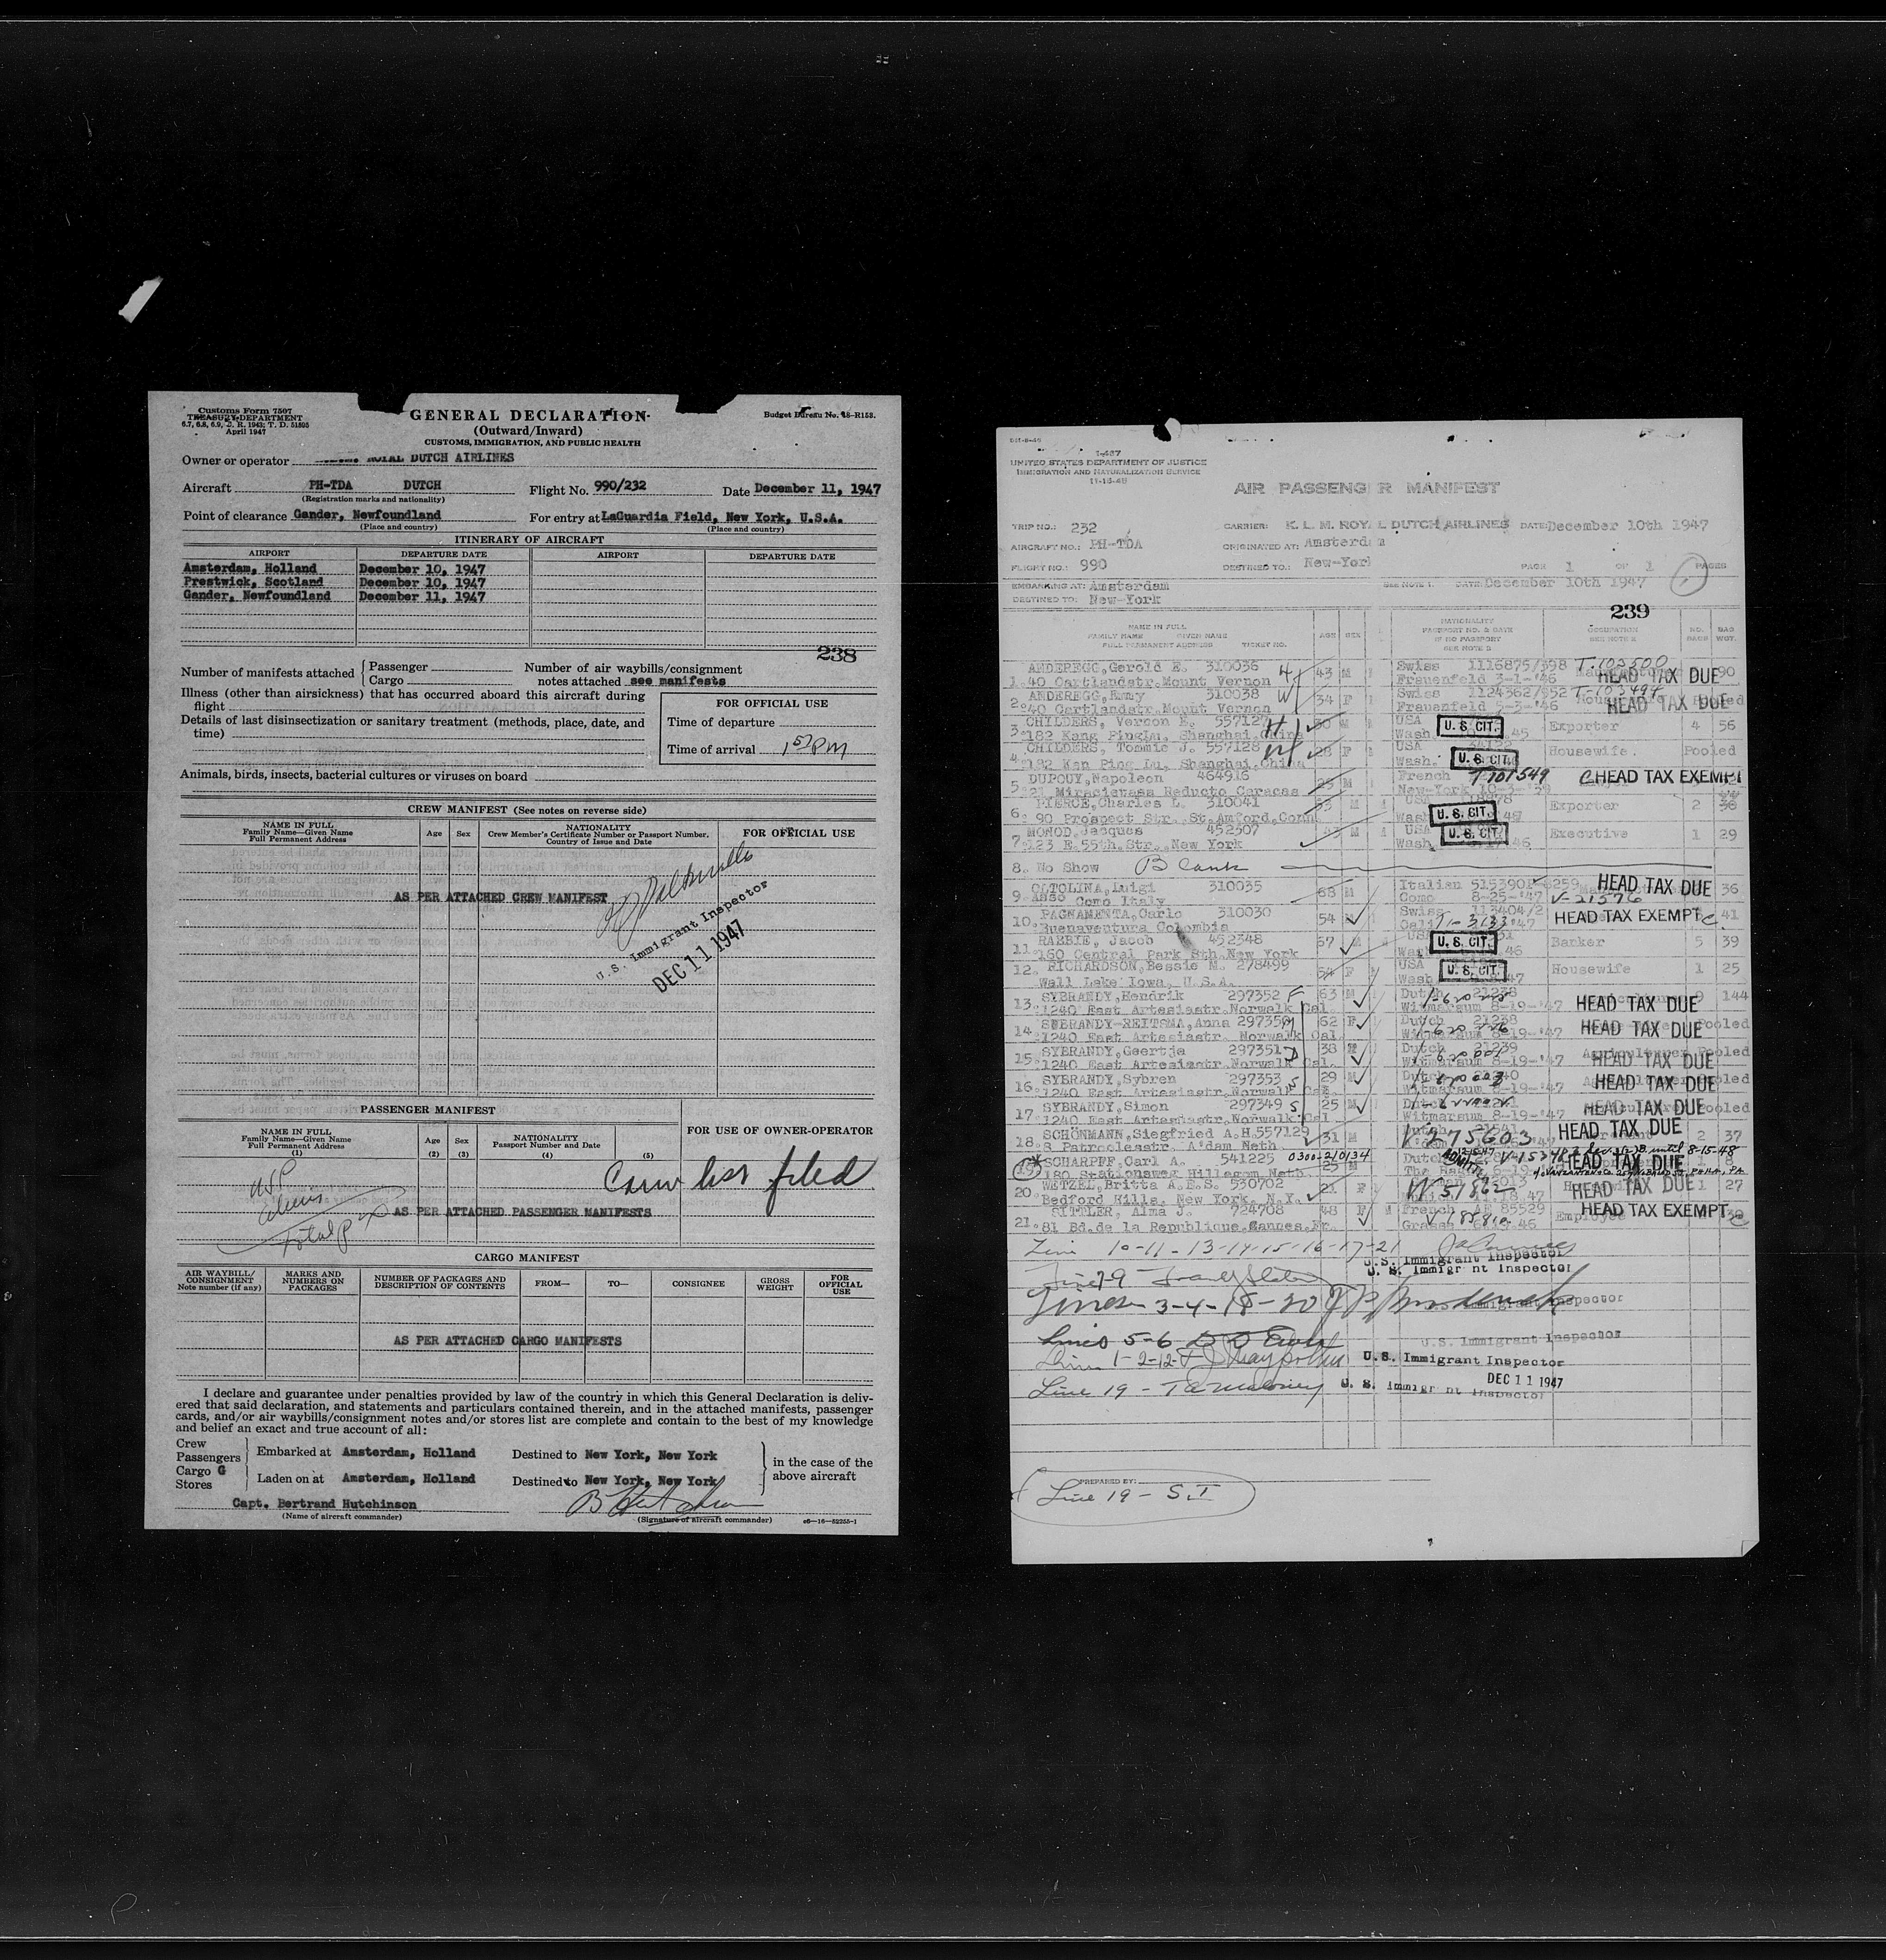 Customs Form 7507
TREASURY DEPARTMENT
6.7, 6.8, 6.9, C. R. 1943; T. D. 51895
April 1947
GENERAL DECLARATION
(Outward/Inward)
CUSTOMS, IMMIGRATION, AND PUBLIC HEALTH
Budget Bureau No. 48-R153.
Owner or operator ROYAL DUTCH AIRLINES
Aircraft PH-TDA DUTCH Flight No. 990/232 Date December 11, 1947
(Registration marks and nationality)
Point of clearance Gander, Newfoundland For entry at LaGuardia Field, New York, U.S.A.
(Place and country) (Place and country)
ITINERARY OF AIRCRAFT
AIRPORT DEPARTURE DATE AIRPORT DEPARTURE DATE
Amsterdam, Holland December 10, 1947
Prestwick, Scotland December 10, 1947
Gander, Newfoundland December 11, 1947
238
Number of manifests attached Passenger Cargo
Number of air waybills/consignment notes attached see manifests
Illness (other than airsickness) that has occurred aboard this aircraft during
flight
Details of last disinsectization or sanitary treatment (methods, place, date, and
time)
FOR OFFICIAL USE
Time of departure
Time of arrival 1 57 PM
Animals, birds, insects, bacterial cultures or viruses on board
CREW MANIFEST (See notes on reverse side)
NAME IN FULL
Family Name—Given Name
Full Permanent Address
Age Sex
NATIONALITY
Crew Member's Certificate Number or Passport Number,
Country of Issue and Date
FOR OFFICIAL USE
AS PER ATTACHED CREW MANIFEST
U.S. Immigrant Inspector
DEC 11 1947
PASSENGER MANIFEST
NAME IN FULL
Family Name—Given Name
Full Permanent Address
(1)
Age
(2)
Sex
(3)
NATIONALITY
Passport Number and Date
(4)
(5)
FOR USE OF OWNER-OPERATOR
list filed
AS PER ATTACHED PASSENGER MANIFESTS
CARGO MANIFEST
AIR WAYBILL/
CONSIGNMENT
Note number (if any)
MARKS AND
NUMBERS ON
PACKAGES
NUMBER OF PACKAGES AND
DESCRIPTION OF CONTENTS
FROM—
TO—
CONSIGNEE
GROSS
WEIGHT
FOR
OFFICIAL
USE
AS PER ATTACHED CARGO MANIFESTS
I declare and guarantee under penalties provided by law of the country in which this General Declaration is deliv-
ered that said declaration, and statements and particulars contained therein, and in the attached manifests, passenger
cards, and/or air waybills/consignment notes and/or stores list are complete and contain to the best of my knowledge
and belief an exact and true account of all:
Crew
Passengers
Cargo G
Stores
Embarked at Amsterdam, Holland Destined to New York, New York
Laden on at Amsterdam, Holland Destined to New York, New York
in the case of the
above aircraft
Capt. Bertrand Hutchinson
(Name of aircraft commander) (Signature of aircraft commander) c6—16—52255-1
I-487
UNITED STATES DEPARTMENT OF JUSTICE
IMMIGRATION AND NATURALIZATION SERVICE
11-15-45
AIR PASSENGER MANIFEST
TRIP NO.: 232 CARRIER: K. L. M. ROYAL DUTCH AIRLINES DATE: December 10th 1947
AIRCRAFT NO.: PH-TDA ORIGINATED AT: Amsterdam
FLIGHT NO.: 990 DESTINED TO.: New-York PAGE 1 OF 1 PAGES
EMBARKING AT: Amsterdam SEE NOTE 1. DATE: December 10th 1947
DESTINED TO: New-York
239
NAME IN FULL
FAMILY NAME GIVEN NAME
FULL PERMANENT ADDRESS TICKET NO.
AGE SEX
NATIONALITY
PASSPORT NO. & DATE
IF NO PASSPORT
SEE NOTE 2
OCCUPATION
SEE NOTE 2
NO. BAGS
BAG WGT.
ANDEREGG, Gerold E. 310036 H 43 M Swiss 1116875/398 T-103500
1. 40 Cartlandstr. Mount Vernon Frauenfeld 3-1-'46 HEAD TAX DUE 90
ANDEREGG, Emmy 310038 W 34 F Swiss 1124362/552 T-103494
2. 40 Cartlandstr. Mount Vernon Frauenfeld 5-3-'46 HEAD TAX DUE
CHILDERS, Vernon E. 557127 H M USA U. S. CIT. Exporter 4 56
3. 182 Kang PingLu, Shanghai, China Wash. 45
CHILDERS, Tommie J. 557128 W 28 F USA U. S. CIT. Housewife. Pooled
4. 182 Kan Ping Lu, Shanghai, China Wash.
DUPOUY, Napoleon 464916 25 M French T-101549 HEAD TAX EXEMPT
5. Reducto Caracas New-York 10-3-'39
PIERCE, Charles L. 310041 53 M USA U. S. CIT. Exporter 2 36
6. 90 Prospect Str. St. Amford, Conn. Wash
MONOD, Jacques 452507 M USA U. S. CIT. Executive 1 29
7. 123 E. 55th. Str. New York Wash 46
8. No Show Blank
ORTOLINA, Luigi 310035 68 M Italian HEAD TAX DUE 36
9. Asso Como Italy Como 8-25-'47 V-21576
PAGNAMENTA, Carlo 310030 54 M Swiss 113404/2 HEAD TAX EXEMPT C. 41
10. Buenaventura Colombia Cali
RABBIE, Jacob 452348 67 M U. S. CIT. Banker 5 39
11. 160 Central Park Sth. New York 46
12. RICHARDSON, Bessie M. 278499 54 F USA U. S. CIT. Housewife 1 25
Wall Lake Iowa, U.S.A. Wash 47
SYBRANDY, Hendrik 297352 F 63 M Dutch 21238 9 144
13. 1240 East Artesiastr. Norwalk Cal. Witmarsum 8-19-'47 HEAD TAX DUE
SYBRANDY-REITSMA, Anna 297350 M 62 F Dutch 21238
14. 1240 East Artesiastr. Norwalk Cal. Witmarsum 8-19-'47 HEAD TAX DUE Pooled
SYBRANDY, Geertja 297351 D 38 Dutch 21239
15. 1240 East Artesiastr. Norwalk Cal. Witmarsum 8-19-'47 HEAD TAX DUE Pooled
SYBRANDY, Sybren 297353 S 29 M Dutch
16. 1240 East Artesiastr. Norwalk Cal. Witmarsum 8-19-'47 HEAD TAX DUE Pooled
SYBRANDY, Simon 297349 S 25 M Dutch
17. 1240 East Artesiastr. Norwalk Cal Witmarsum 8-19-'47 HEAD TAX DUE Pooled
SCHÖNMANN, Siegfried A.H. 557129 31 M V-275603 HEAD TAX DUE 2 37
18. 8 Patroclosstr. A'dam Neth
SCHARPFF, Carl A. 541225 0300-210134 25 M Dutch until 8-15-48
19. 180 Stationsweg Hillegom Neth. HEAD TAX DUE
WETZEL, Britta A.E.S. 530702 21 F HEAD TAX DUE 1 27
20. Bedford Hills, New York, N.Y.
SITTLER, Alma J. 724708 48 F French AE 85529 HEAD TAX EXEMPT
21. 81 Bd. de la Republique, Cannes, Fr. Employee
Line 10-11-13-14-15-16-17-21
U.S. Immigrant Inspector
U. S. Immigr nt Inspector
Lines 3-4-18-20 Immigrant Inspector
Lines 5-6 U.S. Immigrant Inspector
Lines 1-2-12 U.S. Immigrant Inspector
DEC 11 1947
Line 19 - U. S. Immigr nt Inspector
PREPARED BY:
Line 19 - S.I